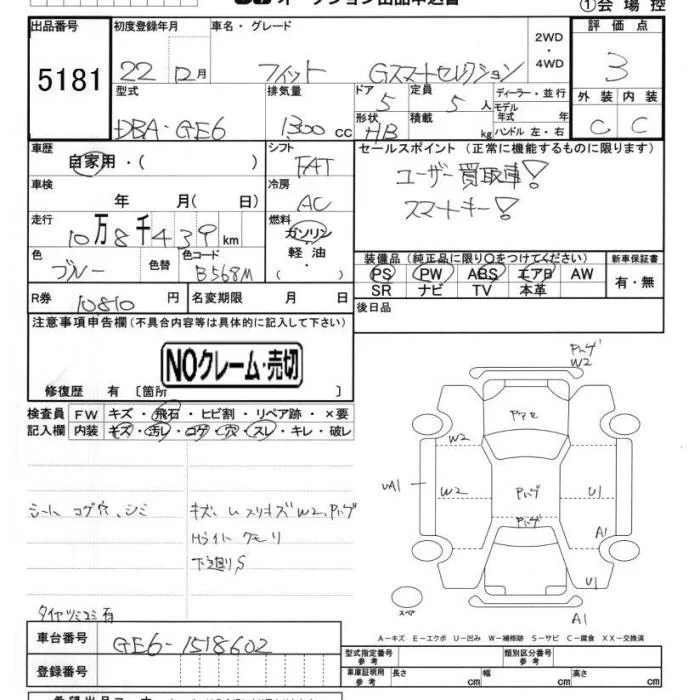 オークション出品申込書
①会場控
出品番号 5181
初度登録年月 22 12月
車名・グレード フィット Gスマートセレクション
2WD・4WD
評価点 3
型式 DBA-GE6
排気量 1300 cc
ドア 5 定員 5 人
ディーラー・並行
モデル年式 年
形状 HB 積載 kg ハンドル 左・右
外装 内装
C C
車歴 自家用・( )
シフト FAT
セールスポイント (正常に機能するものに限ります)
ユーザー買取車!
スマートキー!
車検 年 月( 日)
冷房 AC
走行 10万8千439km
燃料 ガソリン・軽油・( )
色 ブルー 色替 色コード B568M
装備品 (純正品に限り○をつけてください) 新車保証書
PS PW ABS エアB AW 有・無
SR ナビ TV 本革
R券 10810 円 名変期限 月 日
後日品
注意事項申告欄(不具合内容等は具体的に記入して下さい)
NOクレーム・売切
修復歴 有 〔箇所 〕
検査員 FW キズ・飛石・ヒビ割・リペア跡・×要
記入欄 内装 キズ・汚レ・コゲ・穴・スレ・キレ・破レ
シート コゲ穴、シミ
キズ、U スリキズ W2、Pハゲ
Hライト クモリ
下廻りS
タイヤツミコミ有
Pハゲ
W2
Pアセ
W2
UA1 W2 Pハゲ U1
Pハゲ
A1
U1
スペア
A1
A－キズ E－エクボ U－凹み W－補修跡 S－サビ C－腐食 XX－交換済
車台番号 GE6-1518602
登録番号
型式指定番号 参考 類別区分番号 参考
車庫証明用 参考 長さ cm 幅 cm 高さ cm